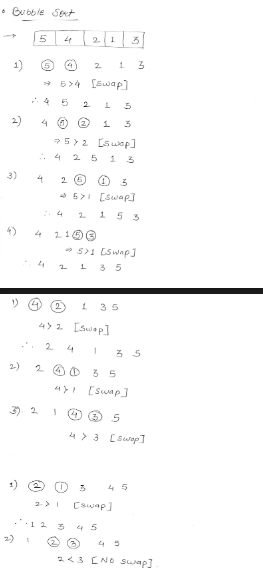 • Bubble Sort
→ 5 4 2 1 3
1) 5 4 2 1 3
⇒ 5>4 [swap]
∴ 4 5 2 1 3
2) 4 5 2 1 3
⇒ 5>2 [swap]
∴ 4 2 5 1 3
3) 4 2 5 1 3
⇒ 5>1 [swap]
∴ 4 2 1 5 3
4) 4 2 1 5 3
⇒ 5>1 [swap]
∴ 4 2 1 3 5
1) 4 2 1 3 5
4>2 [swap]
∴ 2 4 1 3 5
2) 2 4 1 3 5
4>1 [swap]
3) 2 1 4 3 5
4 > 3 [swap]
1) 2 1 3 4 5
2>1 [swap]
∴ 1 2 3 4 5
2) 1 2 3 4 5
2<3 [NO swap]